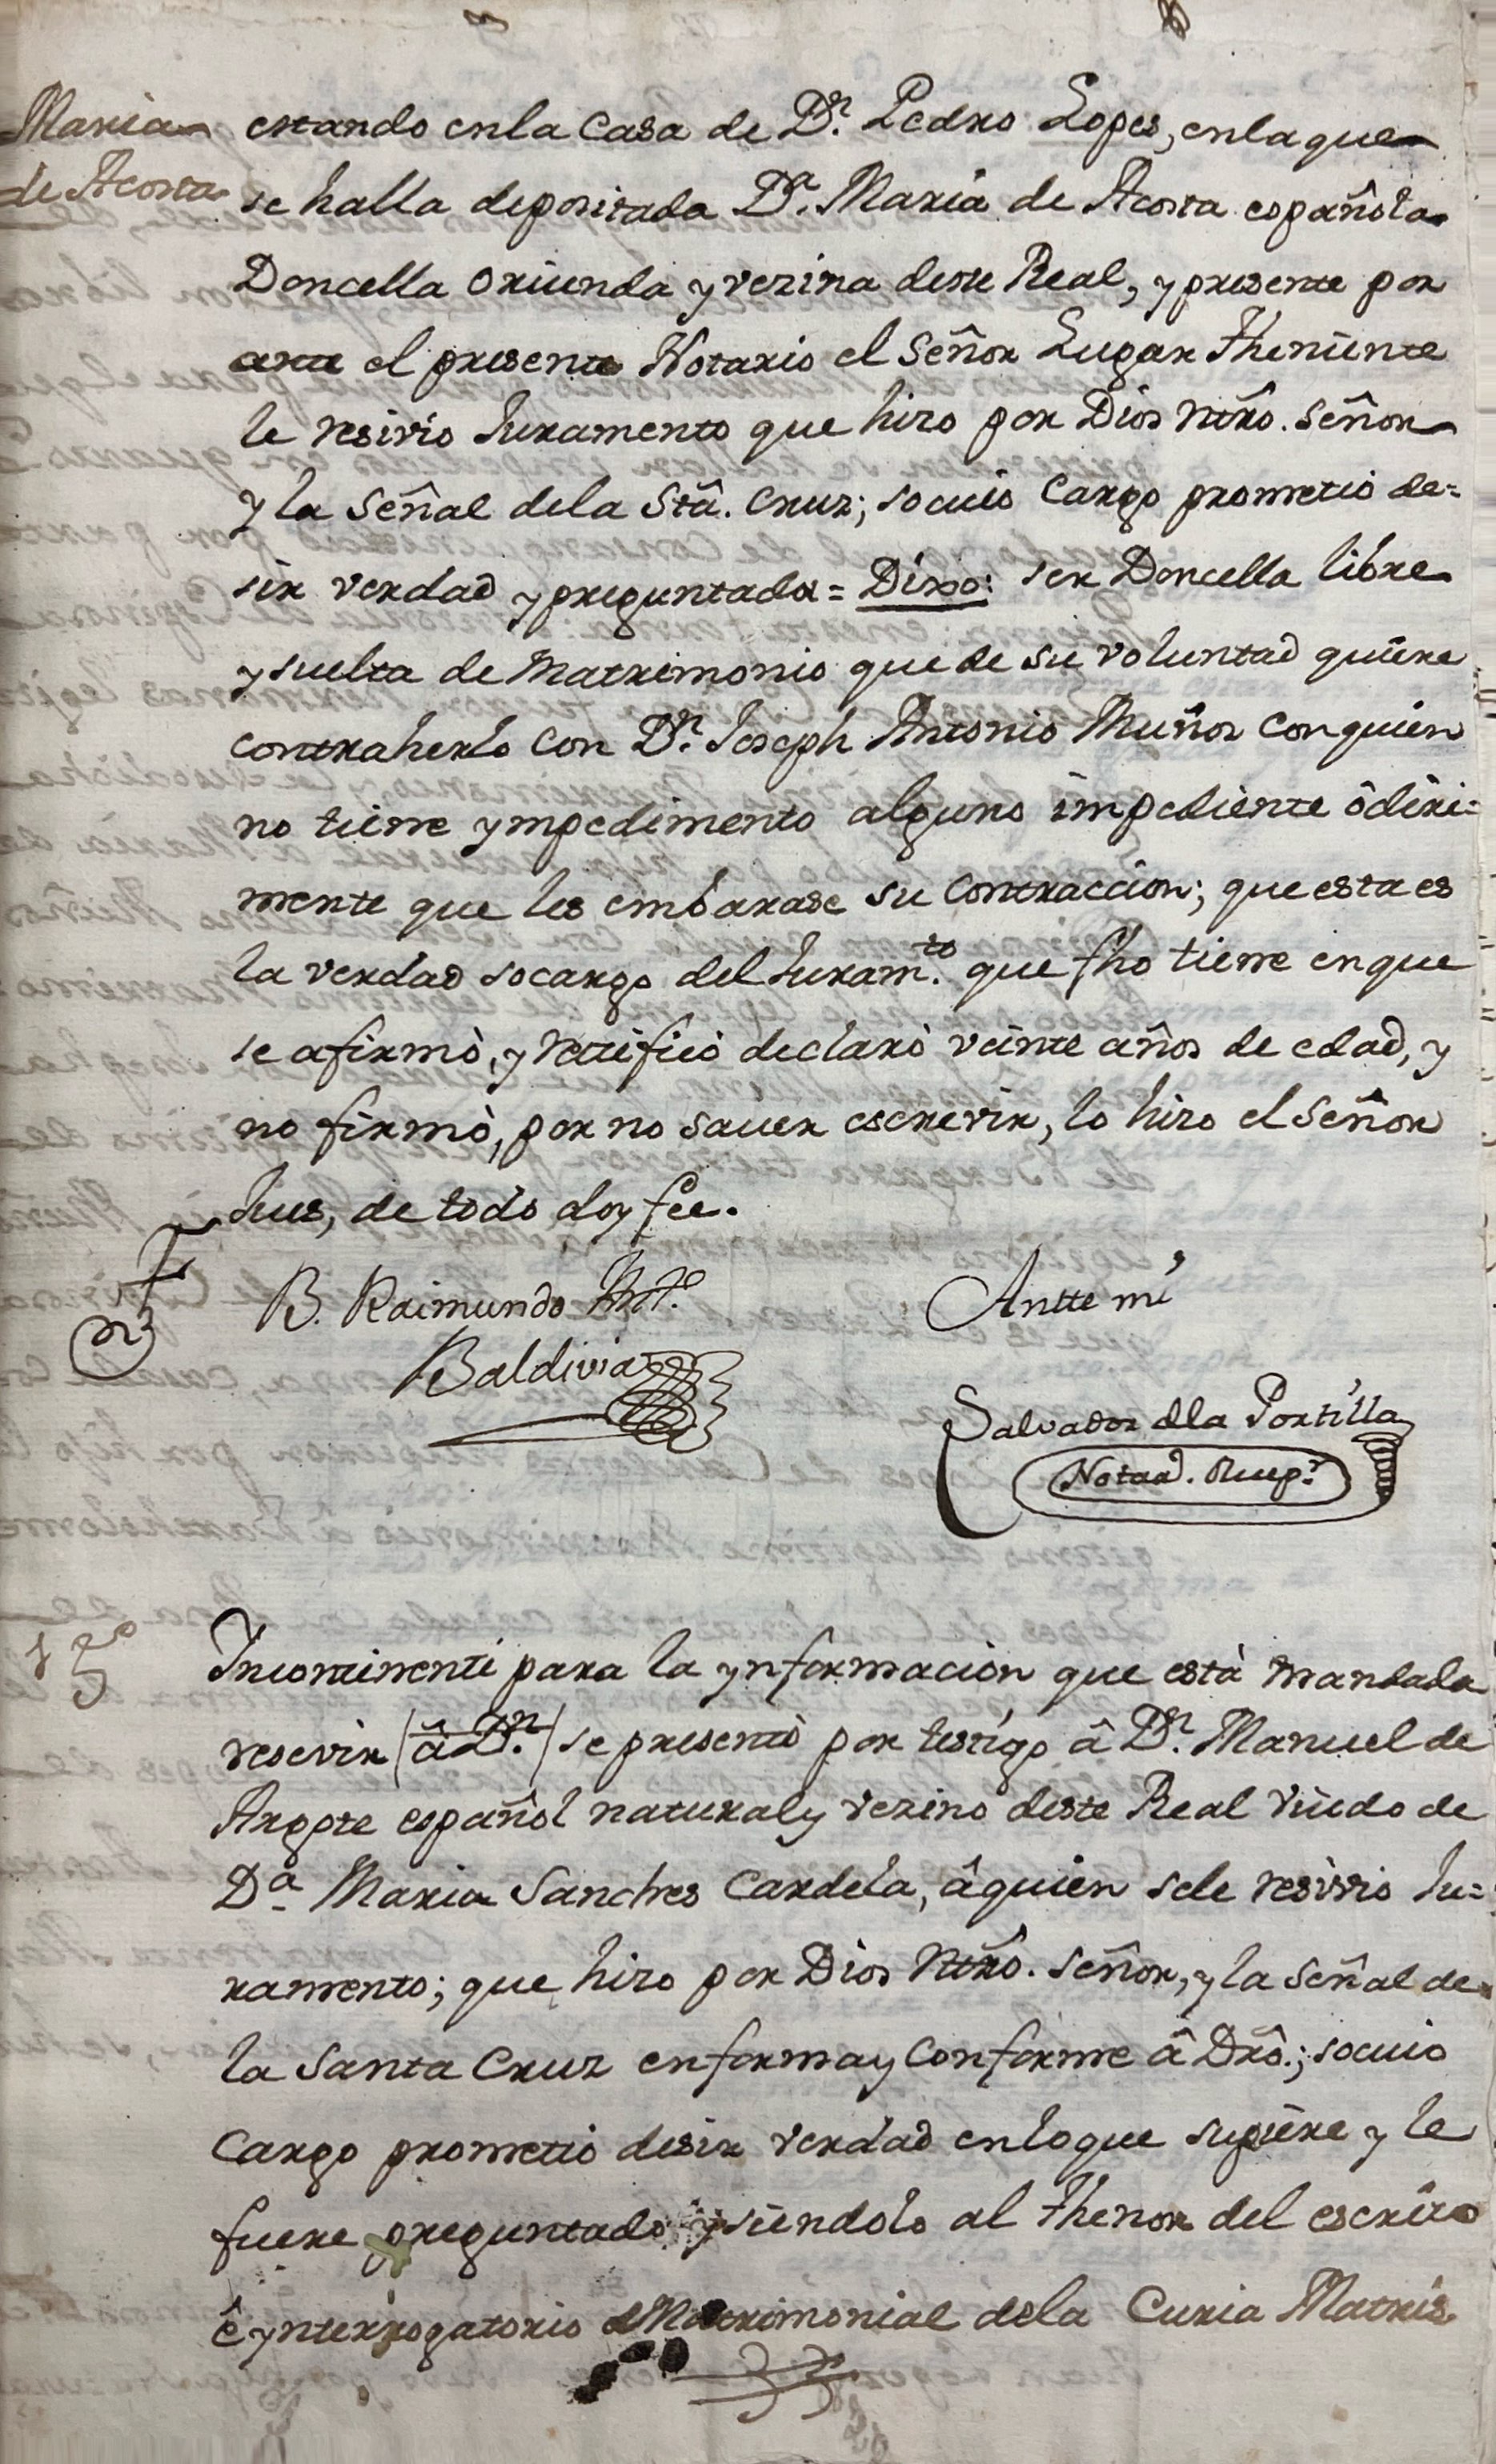 Maria
de Acosta
estando enla Casa de Dn. Pedro Lopes, enlaque
se halla depositada Da. Maria de Acosta española
Doncella Oriunda y vezina deste Real, y presente por
ante el presente Notario el Señor Lugar Theniente
le resivio Juramento que hizo por Dios Ntrô. Señor
y la Señal dela Stâ. Cruz; so cuio Cargo prometio de=
sir verdad y preguntada = Dixo: ser Doncella libre
y suelta de Matrimonio que de su voluntad quiere
contraherlo con Dn. Joseph Antonio Muñoz con quien
no tiene ympedimento alguno impediente ô diri=
mente que les embarase su contraccion; que esta es
la verdad socargo del Juramto. que fho tiene en que
se afirmò, y ratificò declarò veinte años de edad, y
no firmò, por no saver escrevir, lo hizo el Señor
Jues, de todo doy fee.
B. Raimundo Antº.
Baldivia
Antte mi
Salvador dla Portilla
Notaº. Recepr.
1 tº
Incontinenti para la ynformacion que està mandada
resevir (â Dn.) se presentò por testigo â Dn. Manuel de
Argote español natural y vezino deste Real Viudo de
Da. Maria Sanches Cardela, â quien sele resivio Ju=
ramento; que hizo por Dios Ntrô. Señor, y la Señal de
la Santa Cruz en forma y Conforme â Drô.; socuio
Cargo prometio desir verdad enloque supiere y le
fuere preguntado y siendolo al thenor del escrito
ê ynterrogatorio Matrimonial dela Curia Matris